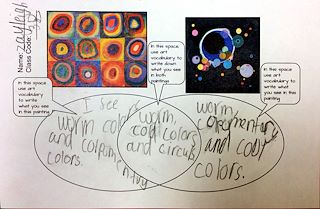 Name: Zayleigh
Class Code:
In this space
use art
vocabulary
to write
what you see
in this painting
In this space,
use art
vocabulary to
write down
what you see
in both
paintings
In this space
use art
vocabulary
to write
what you see
in this painting
I see
worm colors
and colpomentary
colors.
worm,
cool colors
and circuls
worm,
copomentury
and cool
colors.